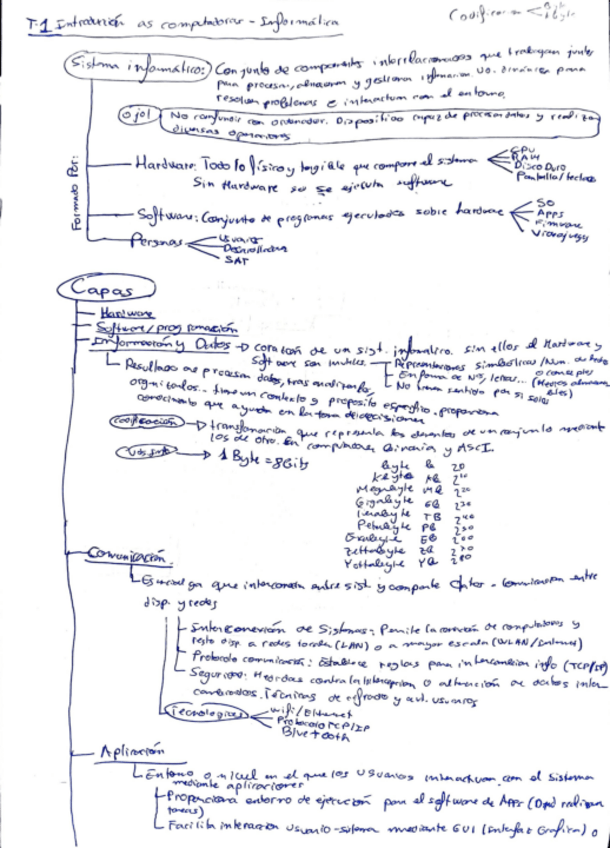 T.1 Introducción as computadoras - Informática
Codificar
Byte
Sistema informático: Conjunto de componentes interrelacionados que trabajan juntos
para procesar, almacenar y gestionar información
resolver problemas e interactuar con el entorno.
Ojo! No confundir con ordenador. Dispositivo capaz de procesar datos y realizar
diversas operaciones
Formado Por:
Hardware: Todo lo físico y tangible que compone el sistema
CPU
RAM
Disco Duro
Pantalla/teclado
Sin Hardware no se ejecuta software
Software: Conjunto de programas ejecutados sobre hardware
SO
APPS
Firmware
Videojuegos
Personas
Usuarios
Desarrollador
SAT
Capas
Hardware
Software/programación
Información y Datos → corazón de un sist. informático. Sin ellos el Hardware y
Software son inutiles.
Representaciones simbólicas/Num. de
En forma de Nºs, letras...
No tienen sentido por si solos
Resultado de procesar datos, tras analizarlos,
organizarlos.. tienen un contexto y proposito especifico. proporciona
conocimiento que ayuda en la toma de decisiones
Codificación → transformación que representa los elementos de un conjunto mediante
los de otro. En computadores Binaria y ASCI.
→ 1 Byte = 8 Bits
Byte B 20
Kbyte KB 2¹⁰
Megabyte MB 2²⁰
Gigabyte GB 2³⁰
Terabyte TB 2⁴⁰
Petabyte PB 2⁵⁰
Exabyte EB 2⁶⁰
Zettabyte ZB 2⁷⁰
Yottabyte YB 2⁸⁰
Comunicación.
Es una que interconexión entre sist. y comparte datos - Comunicación entre
disp. y redes
Interconexión de Sistemas: Permite la conexión de computadoras y
resto disp. a redes locales (LAN) o a mayor escala (WLAN/Internet)
Protocolo comunicación: Establece reglas para intercambiar info (TCP/IP)
Seguridad: Medidas contra la intercepcion o alteración de datos inter
cambiados. Técnicas de cifrado y aut. usuarios
Tecnologias
Wifi/Ethernet
Protocolo TCP/IP
Bluetooth
Aplicación
Entorno o nivel en el que los usuarios interactuan con el sistema
mediante aplicaciones
Proporciona entorno de ejecución para el software de Apps (Dond realizan
tareas)
Facilita interaccion usuario-sistema mediante GUI (Interfaz Grafica) o